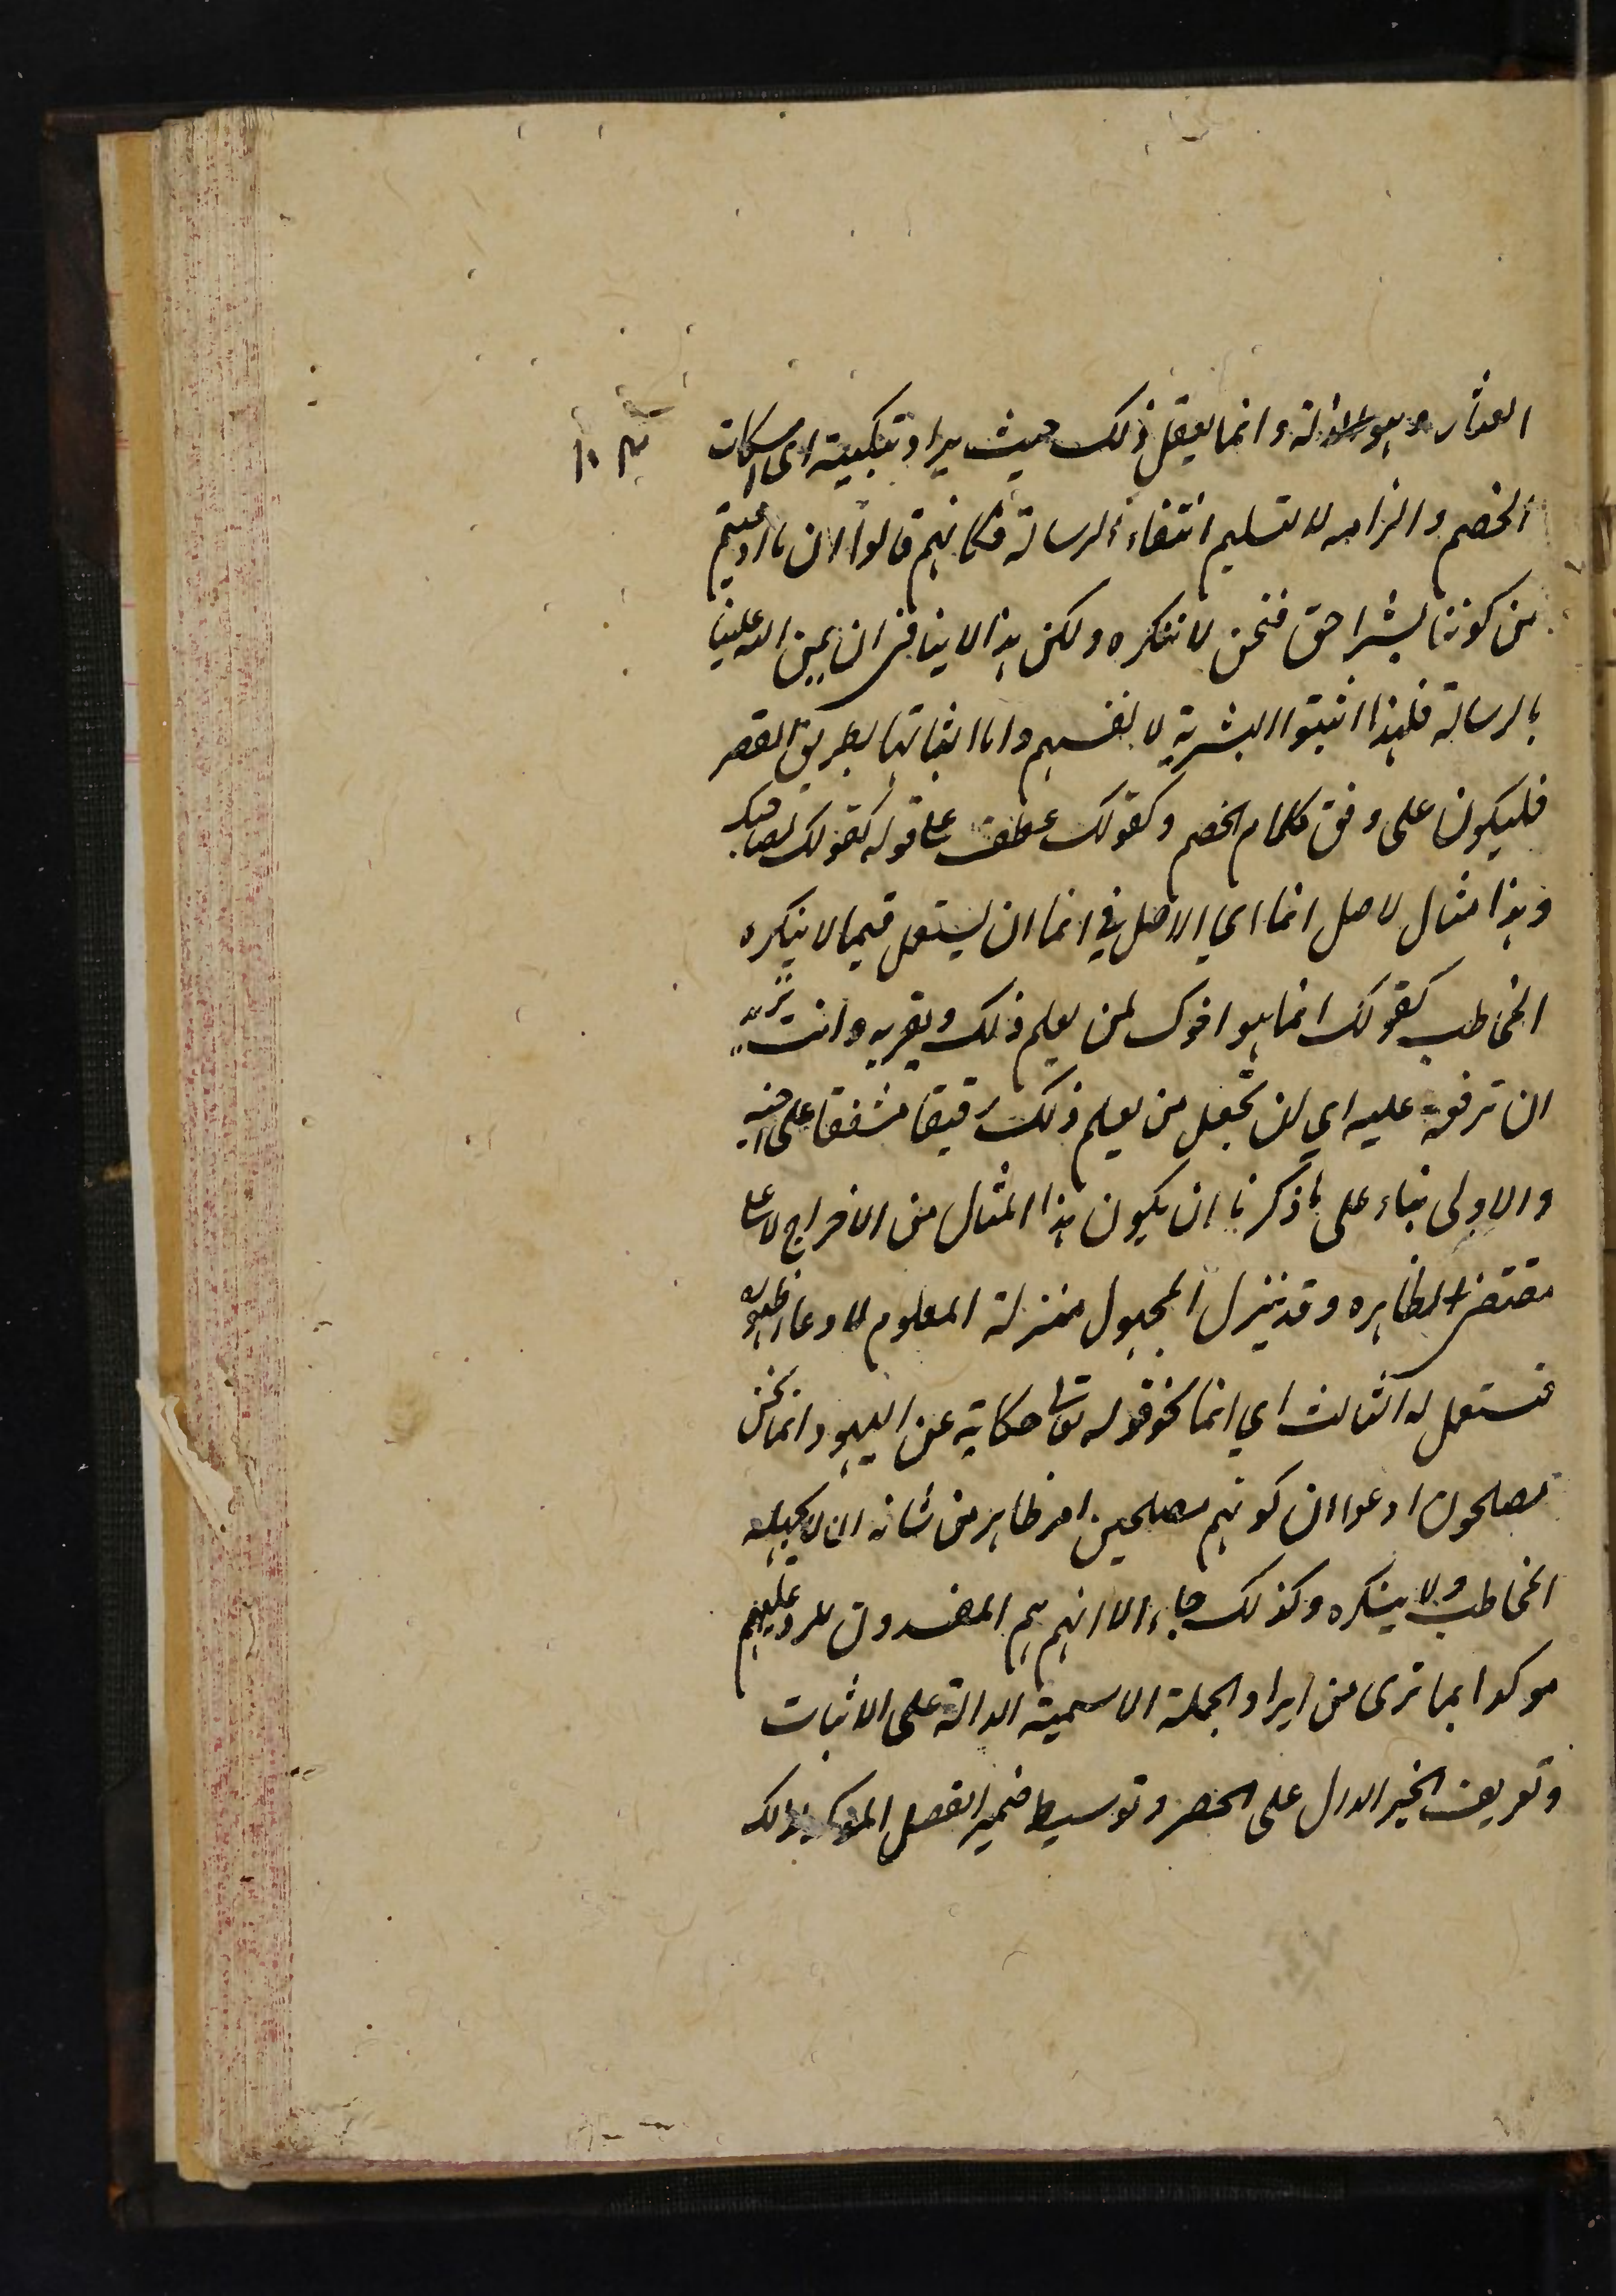 العثار وهو الزلة وانما يفعل ذلك حيث يراد تبكيته اي اسكات
الخصم والزامه لا لتسليم انتفاء الرسالة فكانهم قالوا ان ما ادعيتم
من كوننا بشرا حق فنحن لا ننكره ولكن هذا لا ينافي ان يمن الله علينا
بالرسالة فلهذا اثبتوا البشرية لانفسهم واما اثباتها بطريق القصر
فليكون على وفق كلام الخصم وكقولك عطف على قوله كقولك لصاحبك
وهذا مثال لاصل انما اي الاصل في انما ان يستعمل فيما لا ينكره
المخاطب كقولك انما هو اخوك لمن يعلم ذلك ويقر به وانت تريد
ان ترققه عليه اي ان تجعل من يعلم ذلك رقيقا مشفقا على اخيه
والاولى بناء على ما ذكرنا ان يكون هذا المثال من الاخراج لا على
مقتضى الظاهر وقد ينزل المجهول منزلة المعلوم لادعاء ظهوره
فيستعمل له الثالث اي انما نحو قوله تعالى حكاية عن اليهود انما نحن
مصلحون ادعوا ان كونهم مصلحين امر ظاهر من شانه ان لا يجهله
المخاطب ولا ينكره وكذلك جاء الا انهم هم المفسدون للرد عليهم
موكدا بما ترى من ايراد الجملة الاسمية الدالة على الاثبات
وتعريف الخبر الدال على الحصر وتوسيط ضمير الفصل الموكد لذلك